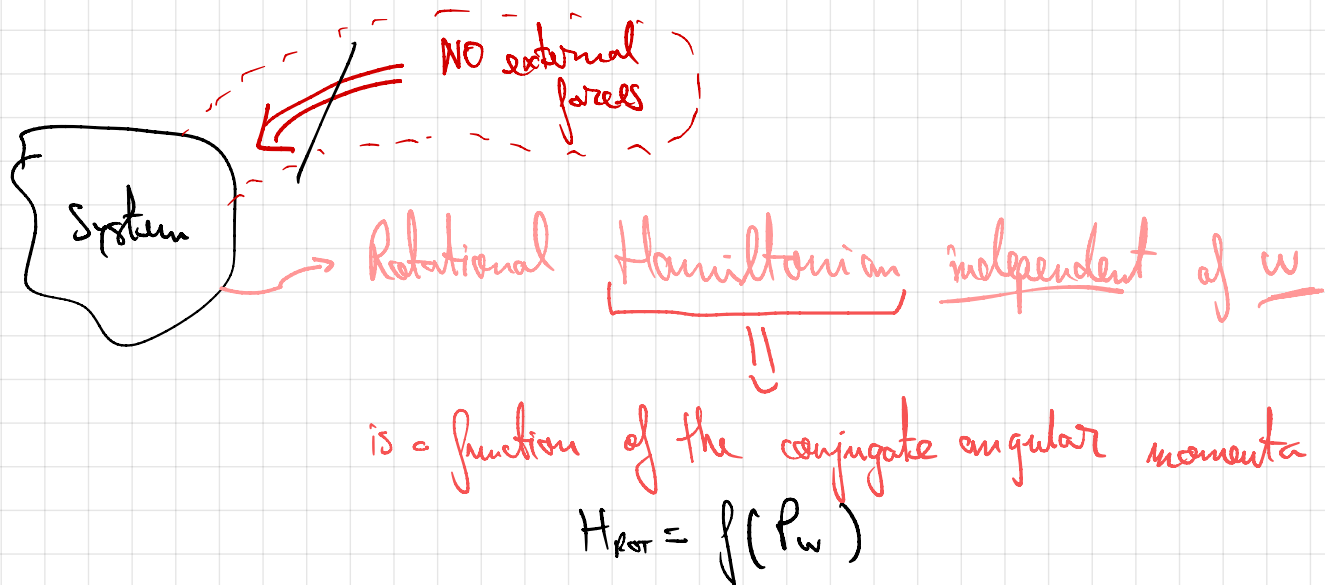 NO external
forces
System
Rotational Hamiltonian independent of w
is a function of the conjugate angular momenta
H_ROT = f(P_w)